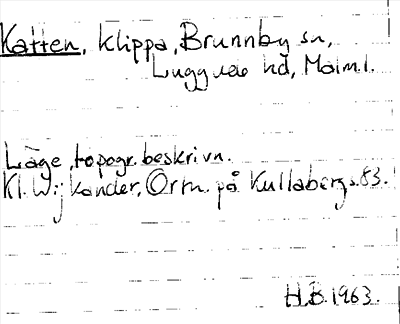 Katten, klippa, Brunnby sn,
Luggude hd, Malm.l.
Läge, topogr. beskrivn.
Kl. Wijkander, Ortn. på Kullaberg s.83.
H.B. 1963.